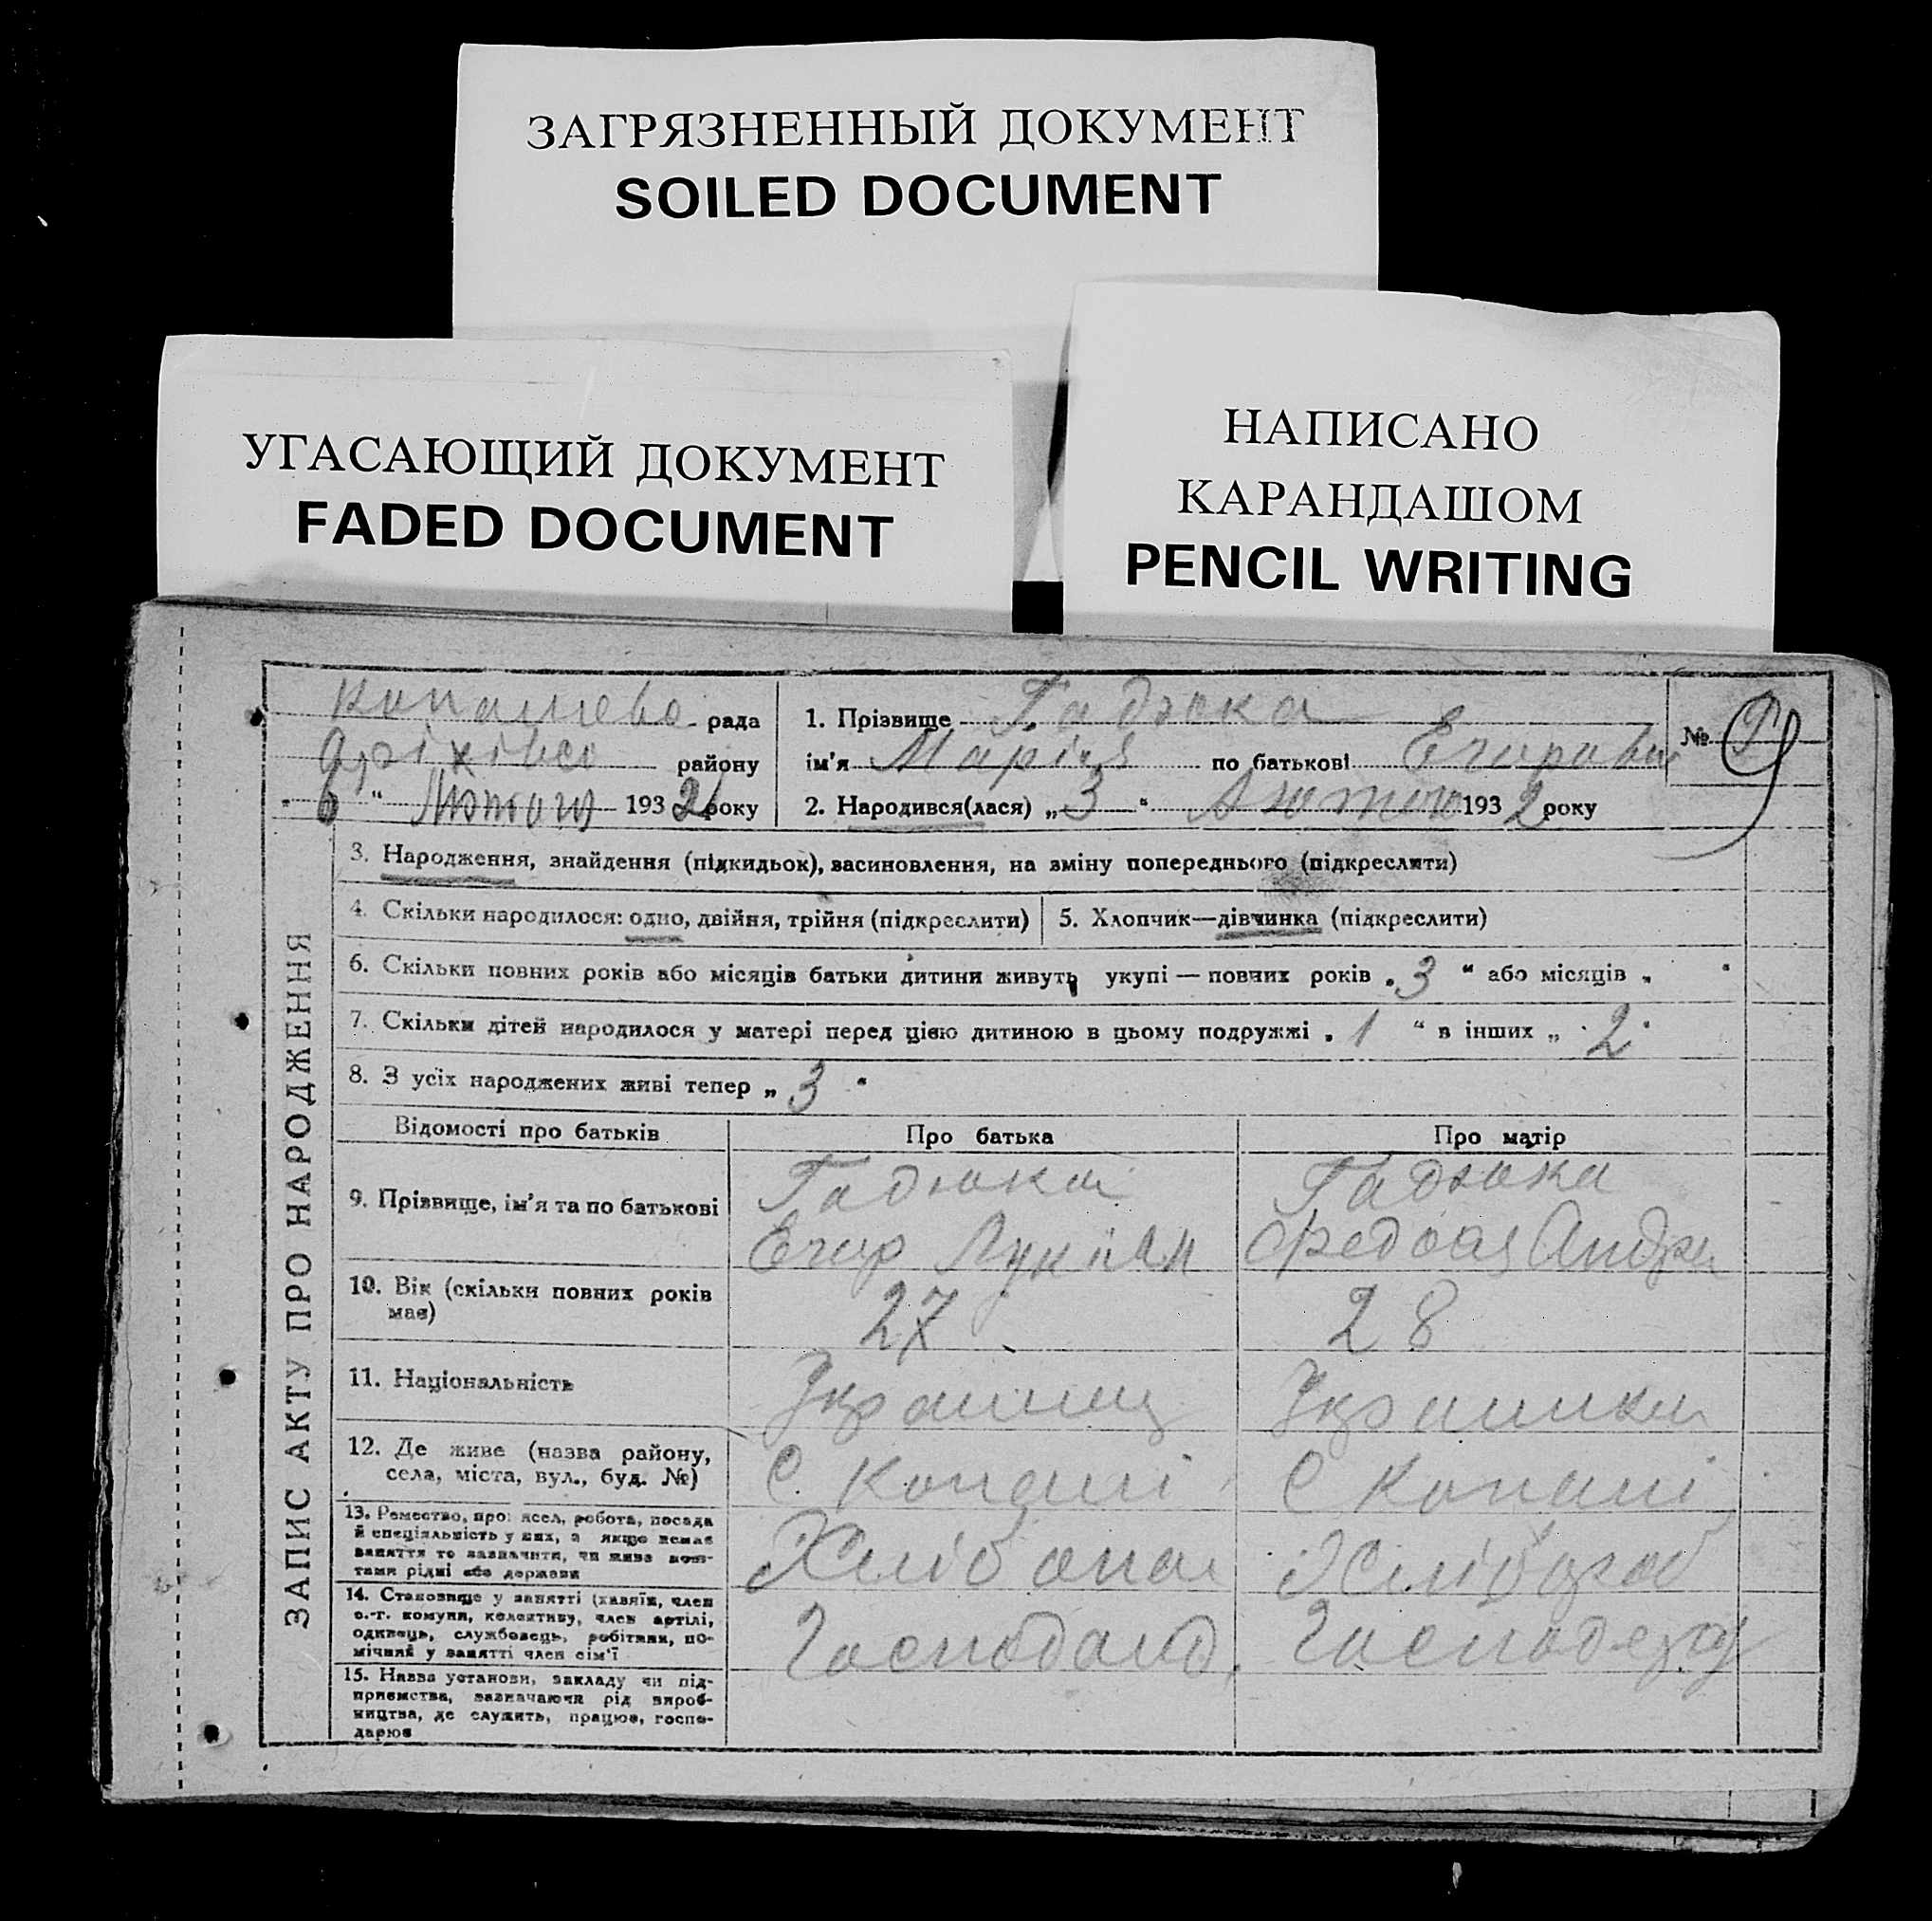 ЗАГРЯЗНЕННЫЙ ДОКУМЕНТ
SOILED DOCUMENT
УГАСАЮЩИЙ ДОКУМЕНТ
FADED DOCUMENT
НАПИСАНО
КАРАНДАШОМ
PENCIL WRITING
ЗАПИС АКТУ ПРО НАРОДЖЕННЯ
рада
району
"6" Лютого 1932 року
1. Прізвище Гадюка
ім'я Марія по батькові
2. Народився(лася) „3" Лютого 1932 року
№ 9
3. Народження, знайдення (підкидьок), васиновлення, на зміну попереднього (підкреслити)
4. Скільки народилося: одно, двійня, трійня (підкреслити)
5. Хлопчик—дівчинка (підкреслити)
6. Скільки повних років або місяців батьки дитини живуть укупі — повних років „3" або місяців „ "
7. Скільки дітей народилося у матері перед цією дитиною в цьому подружжі „1" в інших „2"
8. З усіх народжених живі тепер „3"
Відомості про батьків Про батька Про матір
9. Прізвище, ім'я та по батькові Гадюка Гадюка
10. Вік (скільки повних років 27 28
має)
11. Національність Украинец Украинка
12. Де живе (назва району, С. Копані С Копані
села, міста, вул., буд. №)
13. Ремество, професія, робота, посада
й спеціяльність у них, а якщо немає
заняття то зазначити, чи живе кош-
тами рідні або держави
14. Становище у занятті (хазяїн, член
с.-г. комуни, колективу, член артілі,
одинець, службовець, робітник, по-
мічний у занятті член сім'ї
15. Назва установи, закладу чи під-
приємства, зазначаючи рід вироб-
ництва, де служить, працює, госпо-
дарює